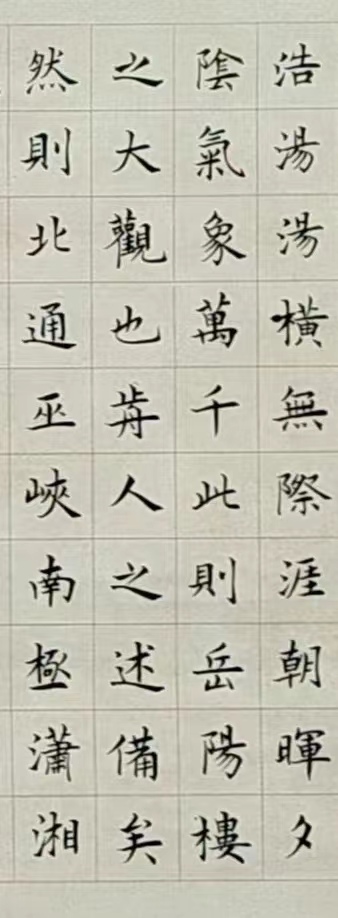 浩湯湯橫無際涯朝暉夕
陰氣象萬千此則岳陽樓
之大觀也歬人之述備矣
然則北通巫峽南極瀟湘